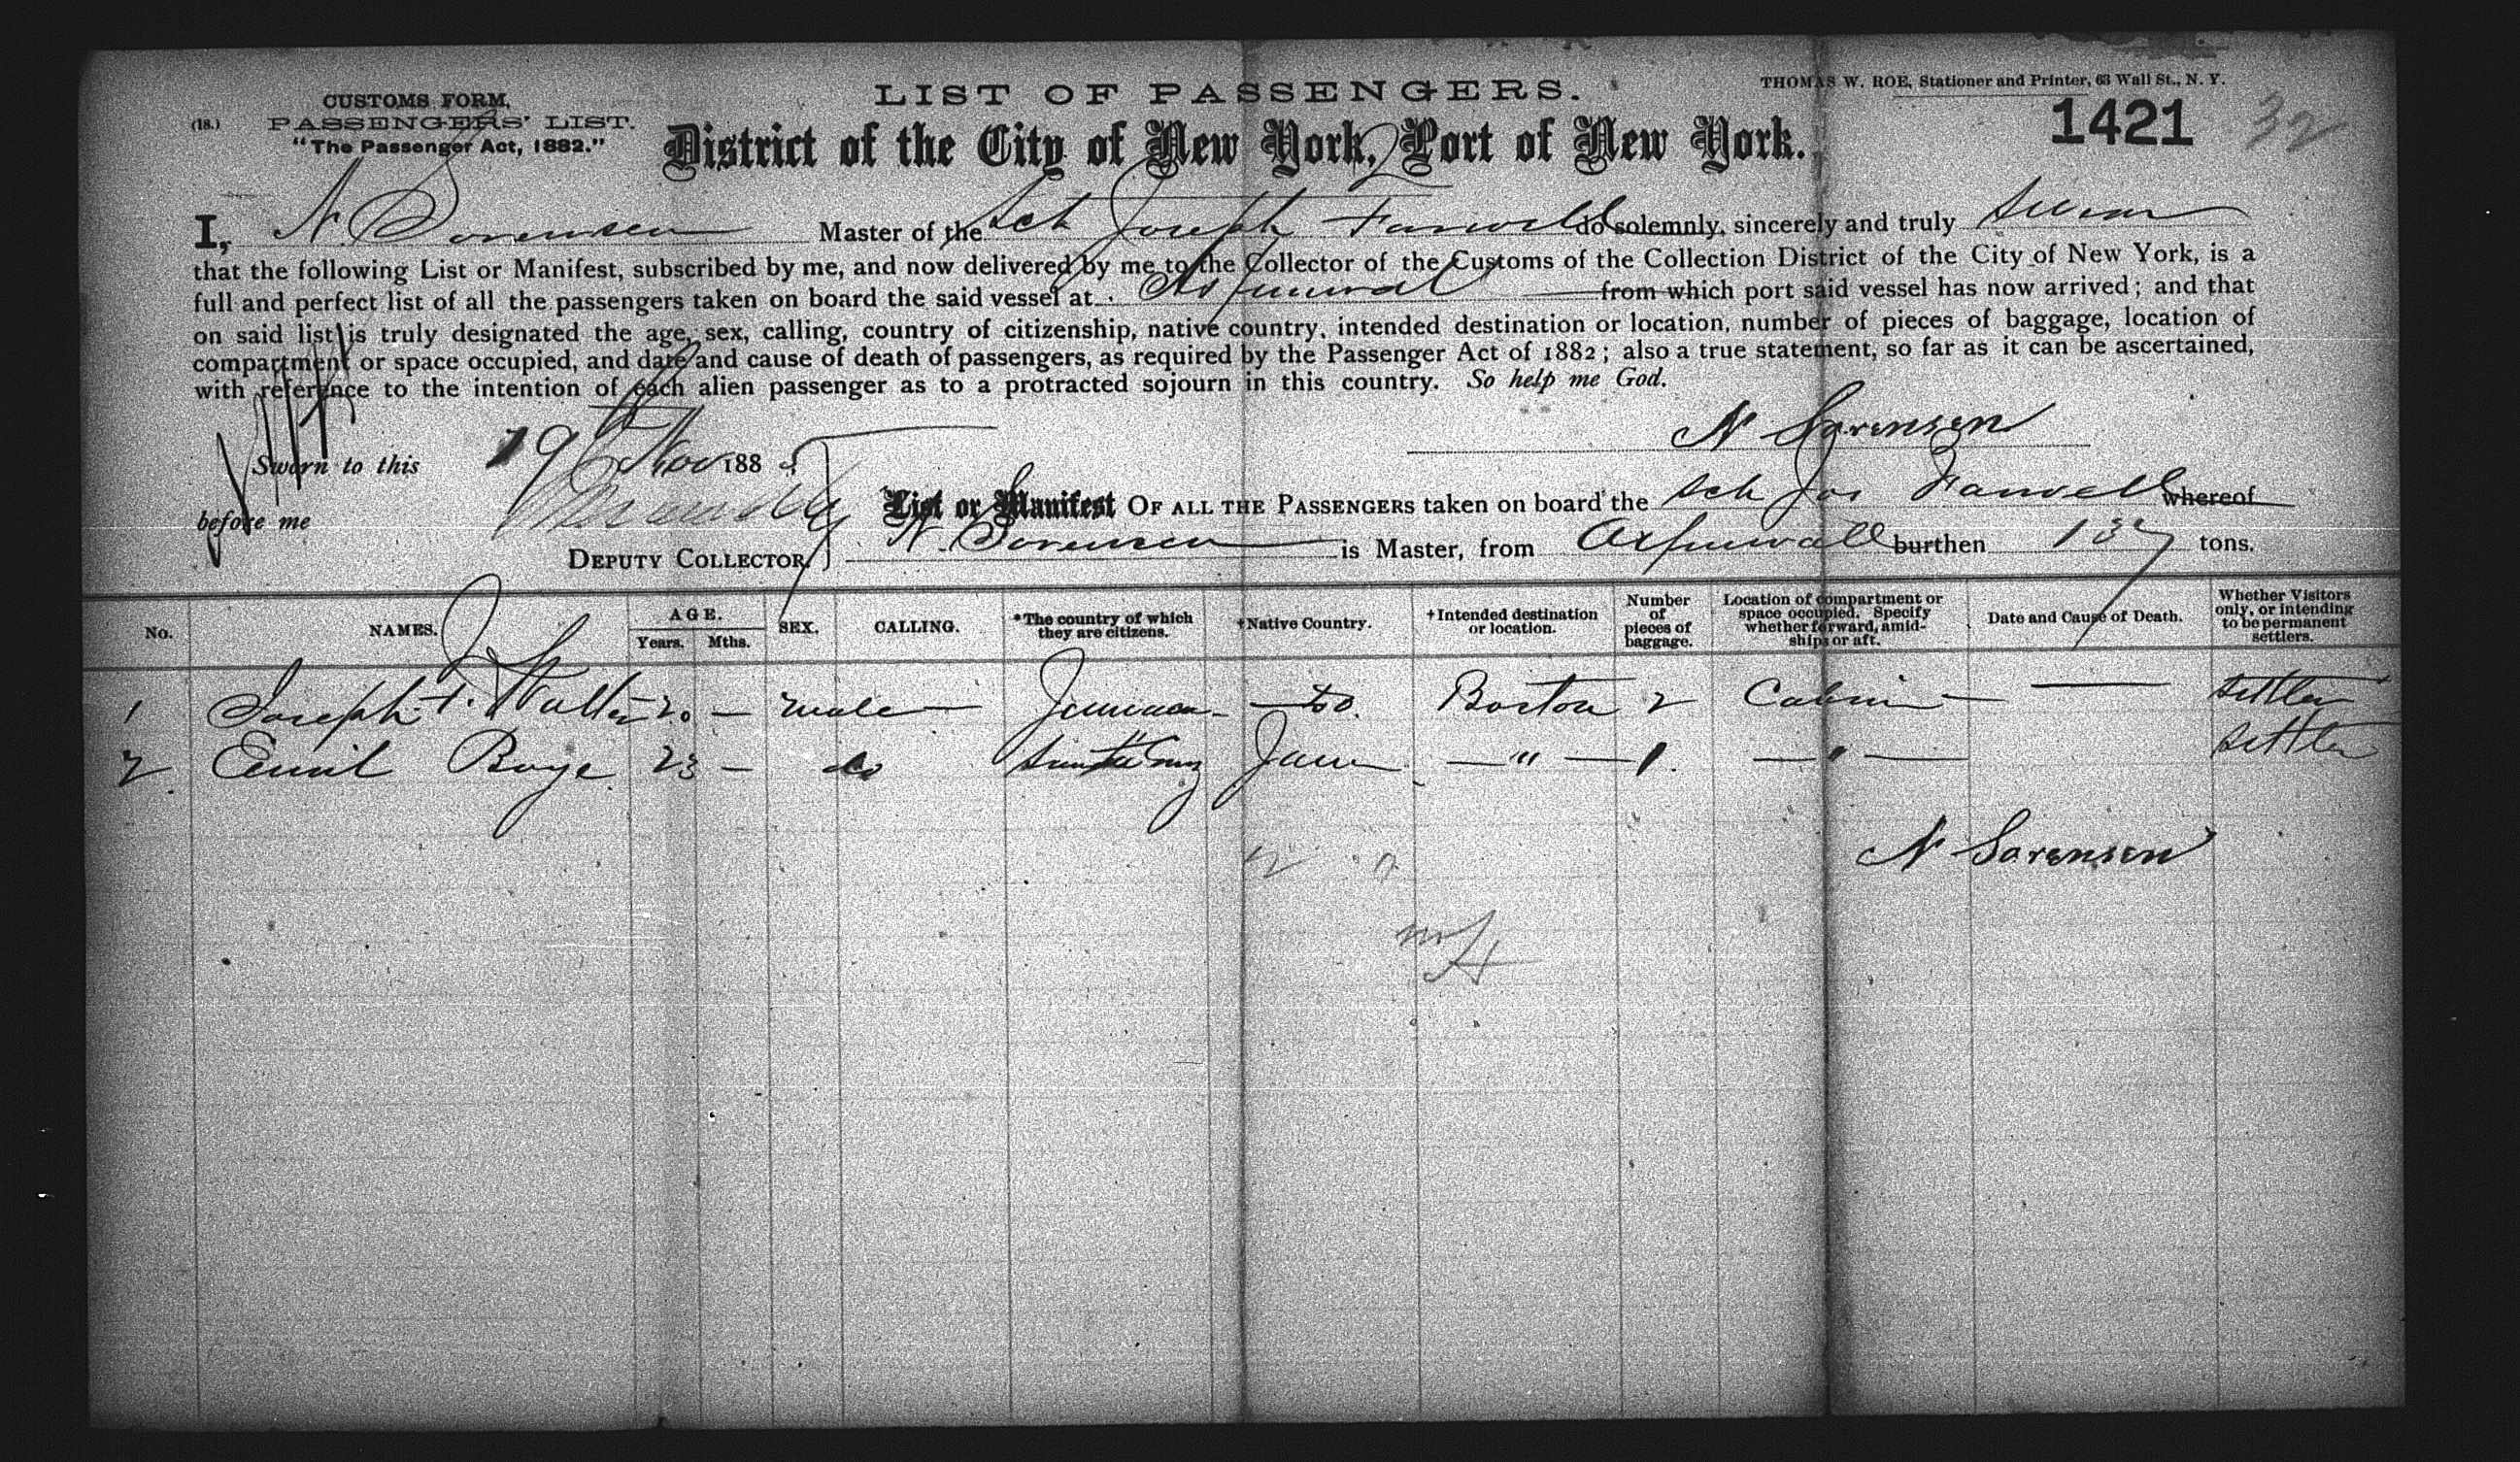 LIST OF PASSENGERS.
THOMAS W. ROE, Stationer and Printer, 63 Wall St., N. Y.
CUSTOMS FORM,
(18.) PASSENGERS' LIST.
"The Passenger Act, 1882."
1421 32
District of the City of New York, Port of New York.
I, N. Sorensen Master of the Sch Joseph Farwell do solemnly, sincerely and truly swear
that the following List or Manifest, subscribed by me, and now delivered by me to the Collector of the Customs of the Collection District of the City of New York, is a
full and perfect list of all the passengers taken on board the said vessel at Aspinwal from which port said vessel has now arrived; and that
on said list is truly designated the age, sex, calling, country of citizenship, native country, intended destination or location, number of pieces of baggage, location of
compartment or space occupied, and date and cause of death of passengers, as required by the Passenger Act of 1882; also a true statement, so far as it can be ascertained,
with reference to the intention of each alien passenger as to a protracted sojourn in this country. So help me God.
N Sorensen
Sworn to this 19th Nov 1885
before me
List or Manifest OF ALL THE PASSENGERS taken on board the Sch Jos Farwell whereof
DEPUTY COLLECTOR. N. Sorensen is Master, from Aspinwall burthen 137 tons.
No. NAMES. AGE. Years. Mths. SEX. CALLING. *The country of which they are citizens. †Native Country. †Intended destination or location. Number of pieces of baggage. Location of compartment or space occupied. Specify whether forward, amidships or aft. Date and Cause of Death. Whether Visitors only, or intending to be permanent settlers.
1 Joseph 20 — male — — do. Boston 2 Cabin — — settler
2 Emil Boye 23 — do — " — 1. — " — settler
N Sorensen